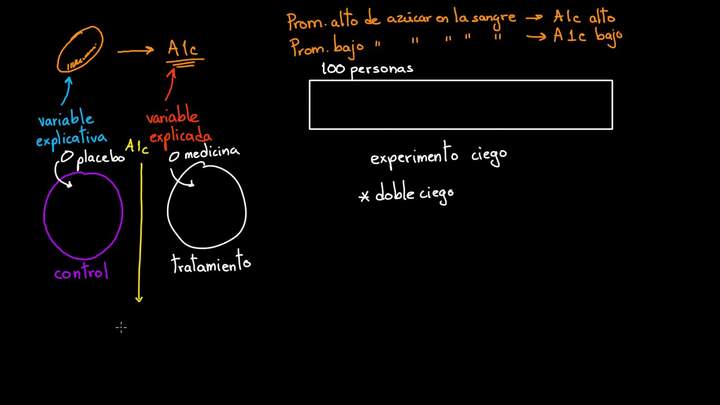 Prom. alto de azúcar en la sangre → A1c alto
Prom. bajo " " " " " → A1c bajo
A1c
100 personas
variable
explicativa
variable
explicada
A1c
placebo
medicina
experimento ciego
* doble ciego
control
tratamiento